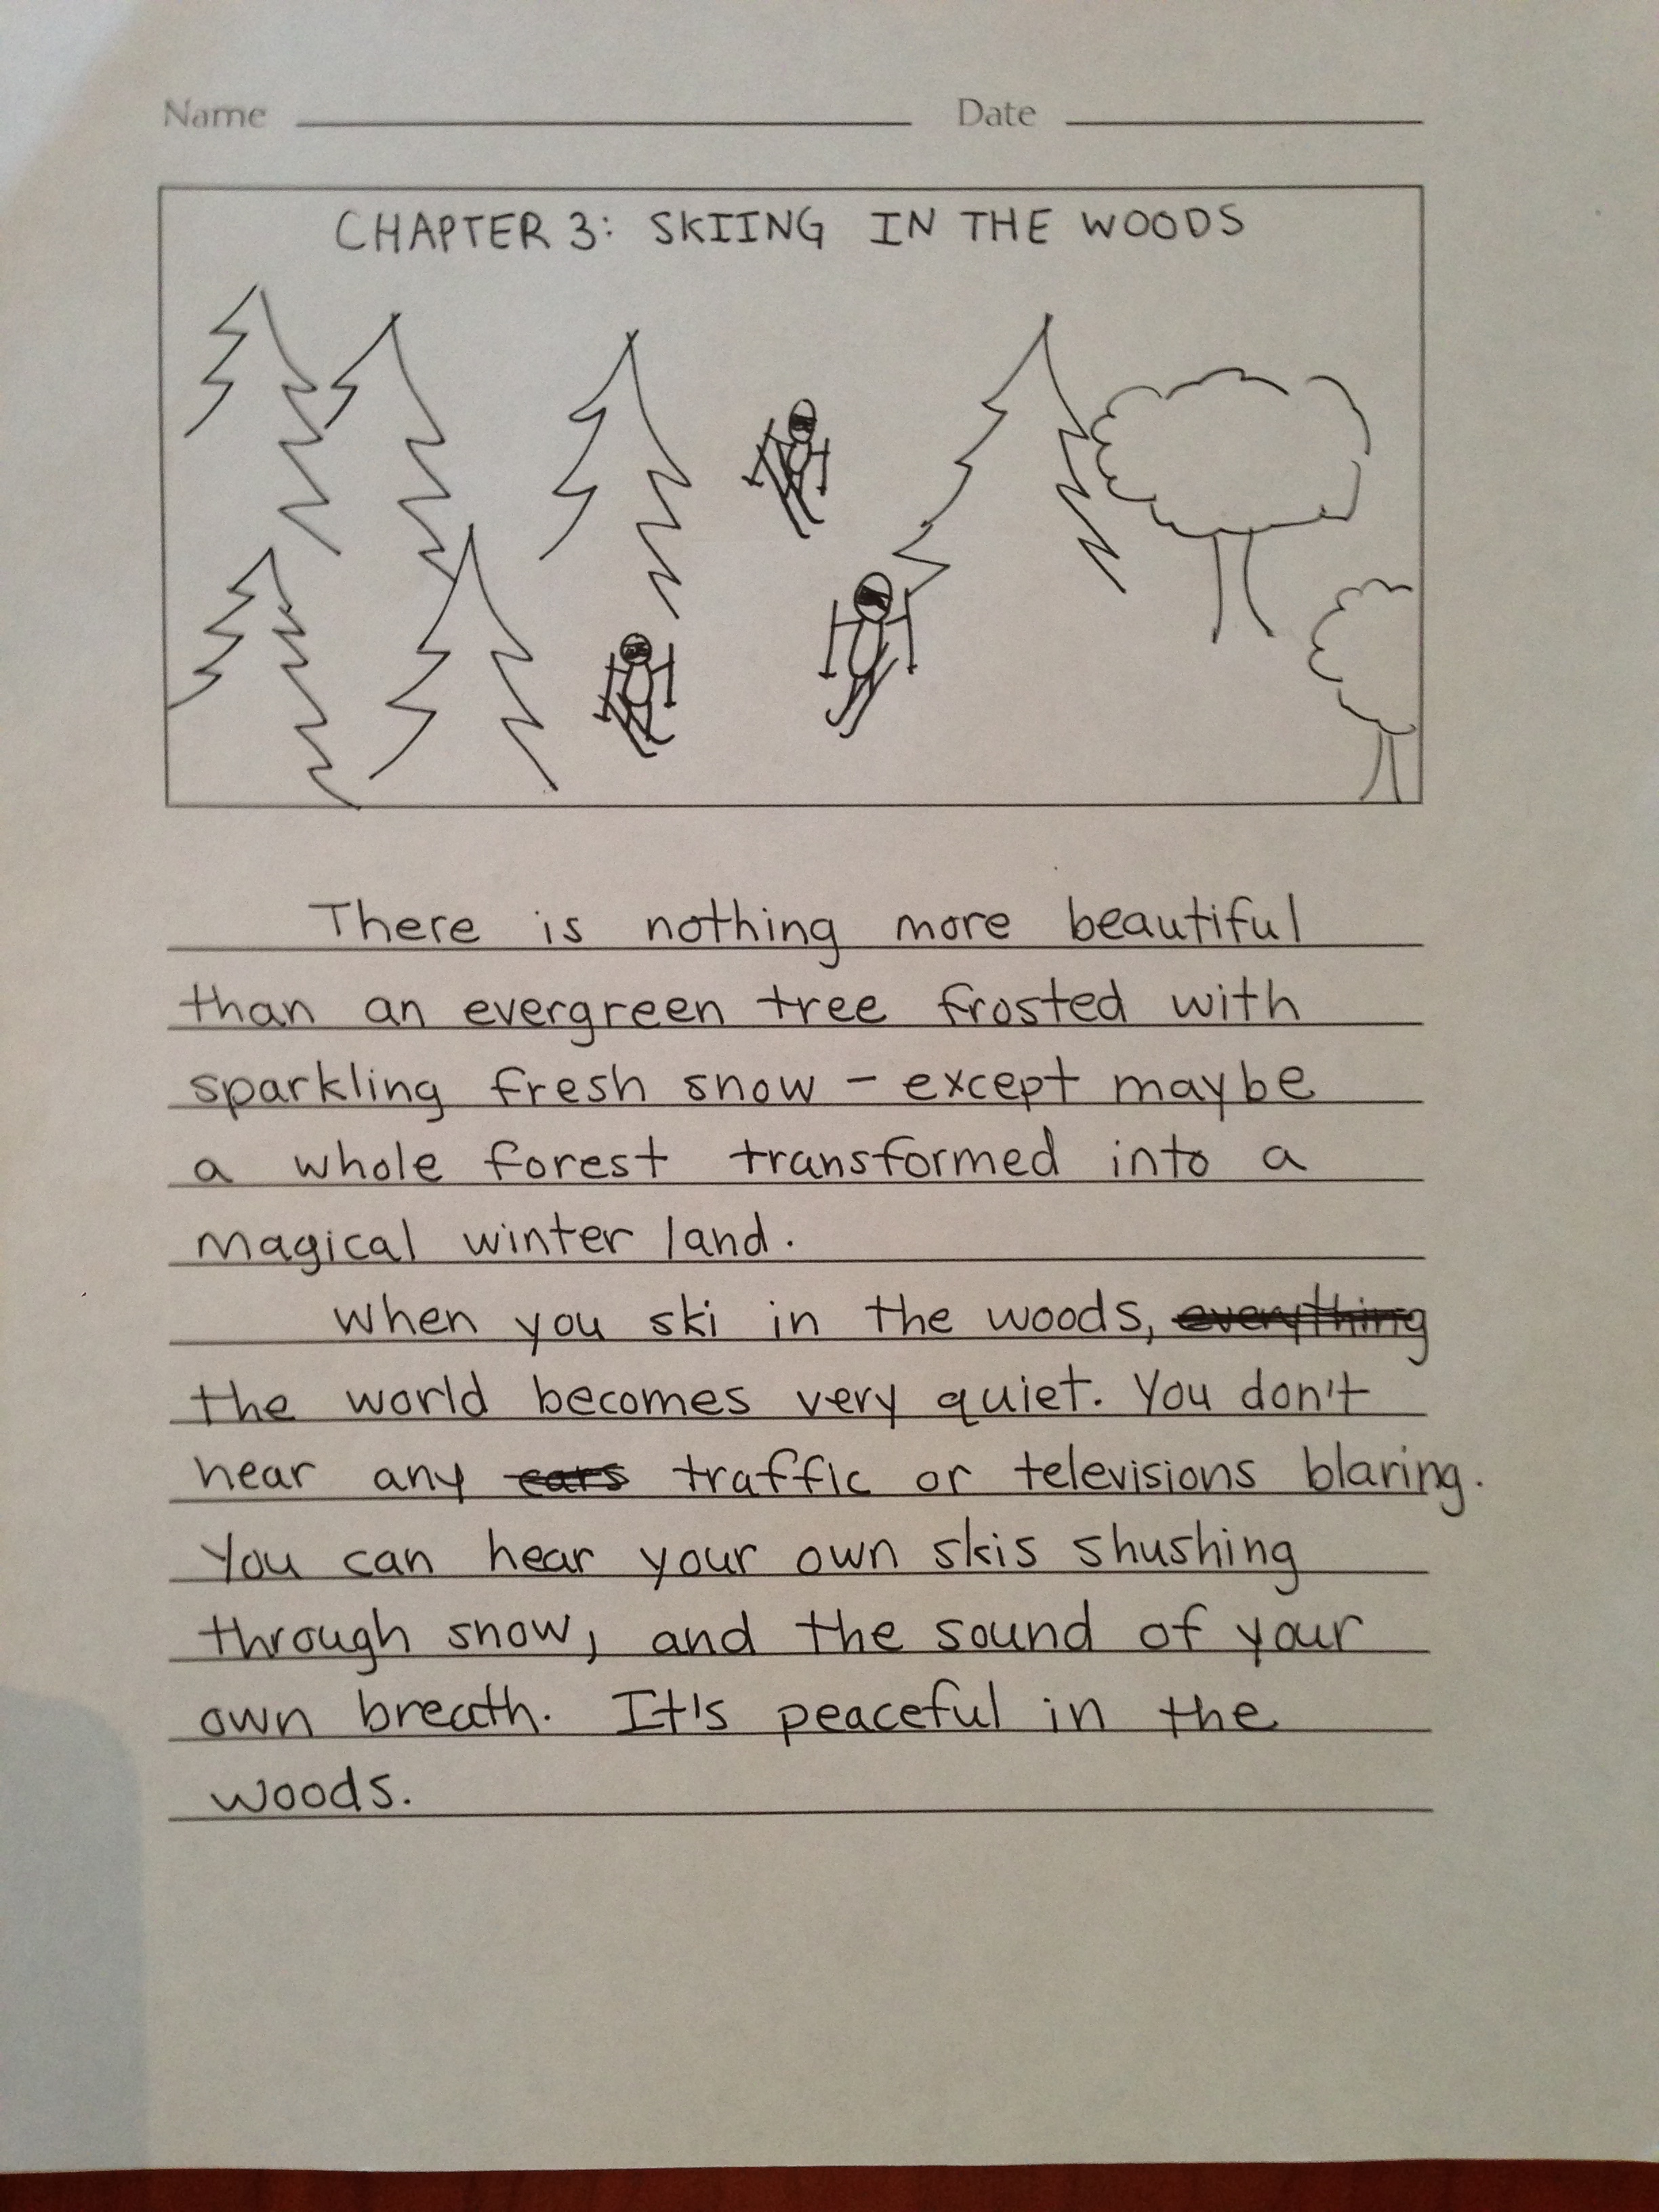 Name Date
CHAPTER 3: SKIING IN THE WOODS
There is nothing more beautiful
than an evergreen tree frosted with
sparkling fresh snow – except maybe
a whole forest transformed into a
magical winter land.
When you ski in the woods, everything
the world becomes very quiet. You don't
hear any cars traffic or televisions blaring.
You can hear your own skis shushing
through snow, and the sound of your
own breath. It's peaceful in the
woods.